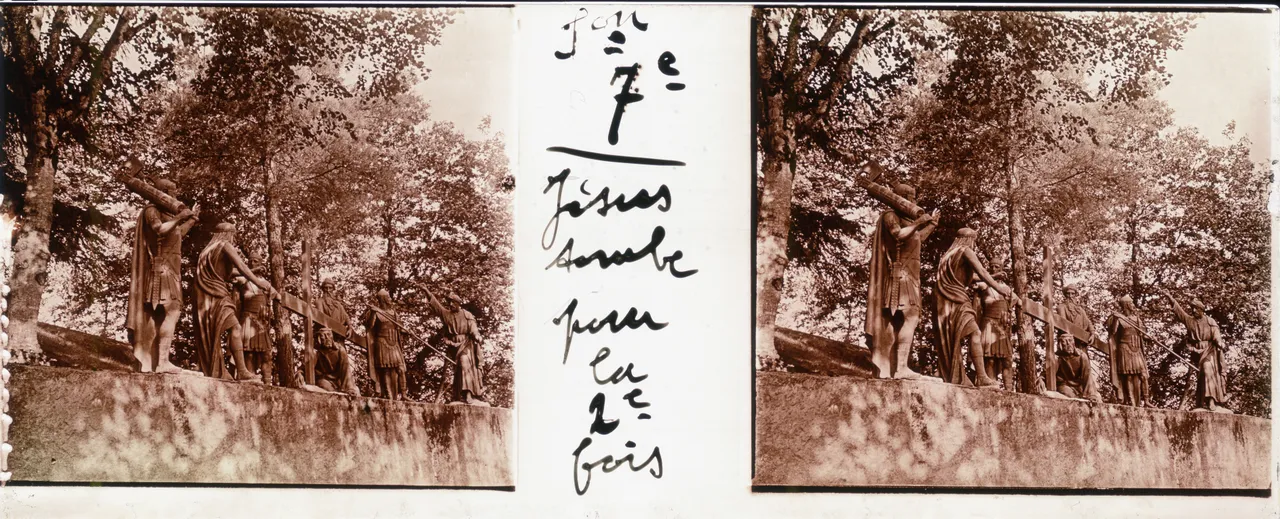 7e
Jésus
tombe
pour
la
2e
fois